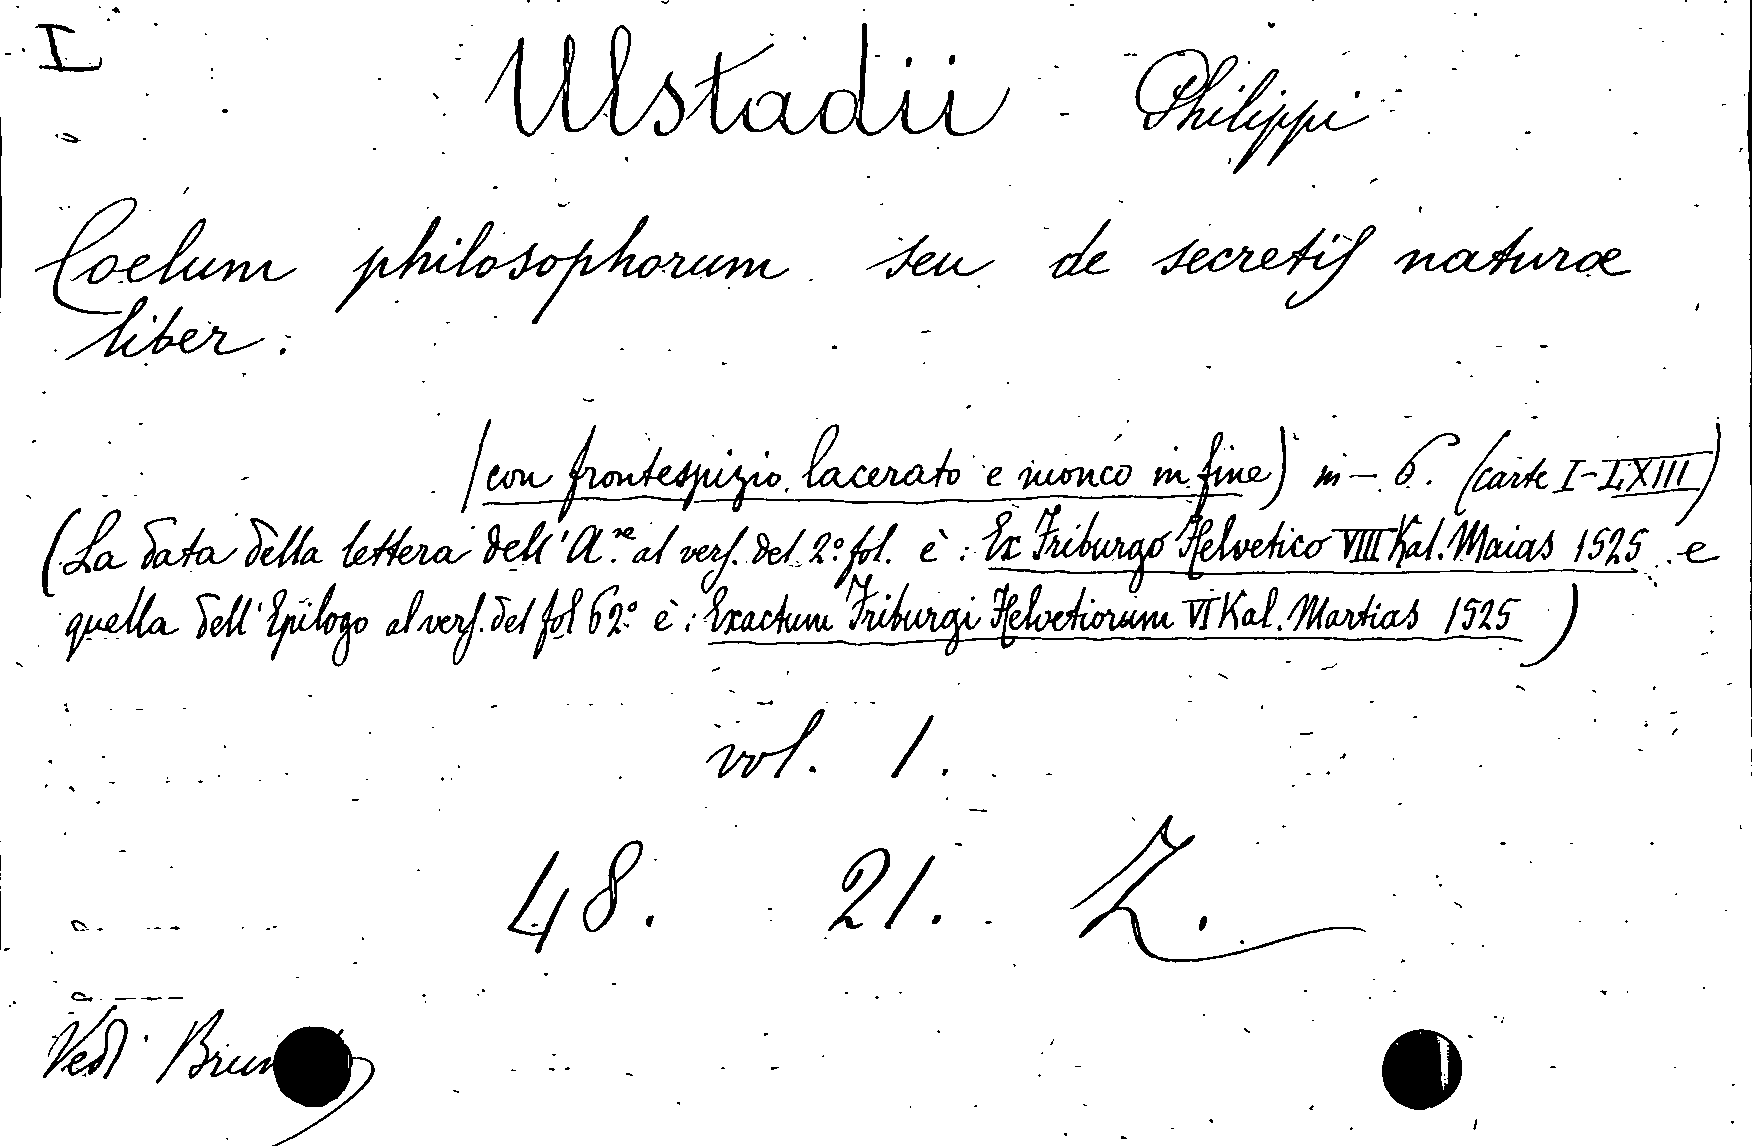 I
Ulstadii Philippi
Coelum philosophorum seu de secretis naturæ
liber.
(con frontespizio lacerato e monco in fine) in-6. (carte I-LXIII)
(La data della lettera dell'A.re al vers. del 2º fol. è: Ex Friburgo Helvetico VIII Kal. Maias 1525 e
quella dell'Epilogo al vers. del fol 62º è: Exactum Friburgi Helvetiorum VI Kal. Martias 1525)
vol. 1.
48. 21. Z.
Vedi